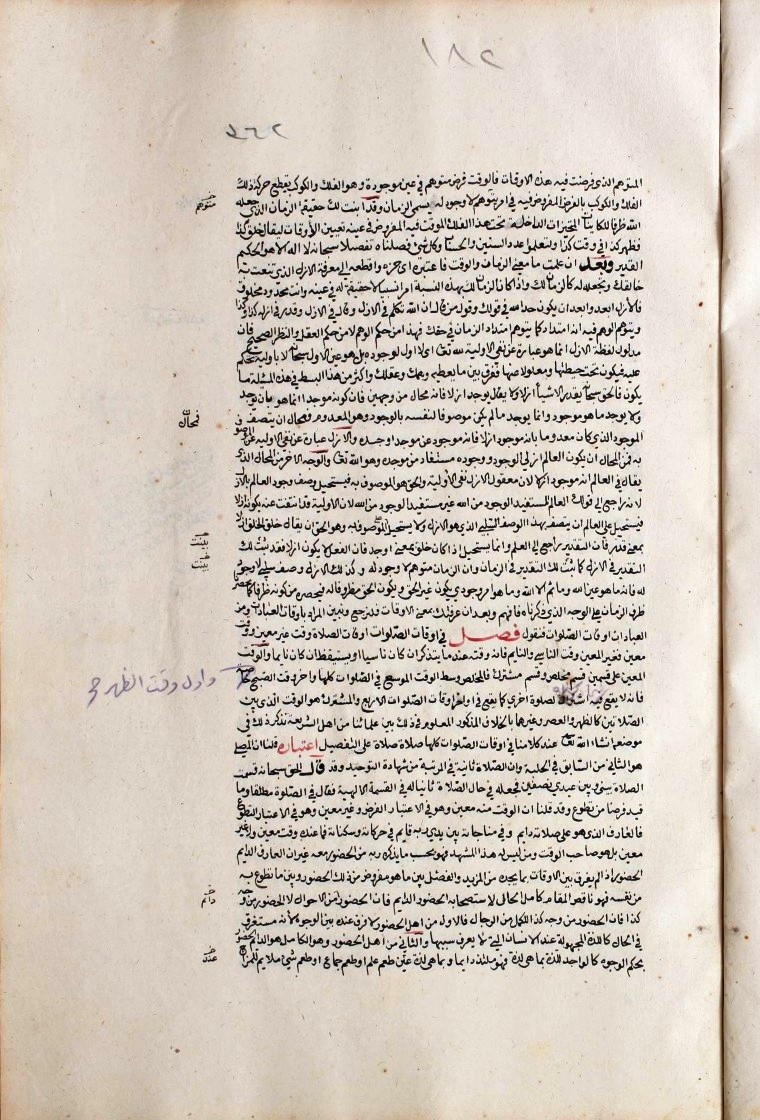 ١٨٢
٢٦٢
المتوهم الذي فرضت فيه هذه الاوقات فالوقت فرض متوهم في عين موجودة وهو الفلك والكوكب يقطع حركة ذلك
الفلك والكوكب بالفرض المفروض فيه في امر متوهم لا وجود له يسمى الزمان وقد ابنت لك حقيقة الزمان الذي جعله
متوهم
الله ظرفا للكاينات المتحيزات الداخلة تحت هذا الفلك الموقت فيه المفروض في عينه تعيين الأوقات ليقال خلق كذا
فظهر كذا في وقت كذا ولتعلموا عدد السنين والحساب وكل شئ فصلناه تفصيلا سبحانه لا اله الا هو الحكيم
القدير وبعد ان علمت ما معنى الزمان والوقت فاعتبره اي جزه واقطعه الى معرفة الازل الذي تنعت به
خالقك وتجعله له كالزمان لك واذا كان الزمان لك بهذه النسبة امر نسبي لا حقيقة له في عينه وانت محدود مخلوق
فالأزل ابعد وابعد ان يكون حدا لله في قولك وقول من قال ان الله تكلم في الازل وقال في الازل وقدر في ازله كذا وكذا
ويتوهم الوهم فيه انه امتداد كما يتوهم امتداد الزمان في حقك فهذا من حكم الوهم لا من حكم العقل والنظر الصحيح فان
مدلول لفظة الازل انما هو عبارة عن نفي الاولية لله تعالى اي لا اول لوجوده بل هو عين الاول سبحانه لا باولية تحكم
عليه فيكون تحت حيطتها ومعلولا عنها وفرق بين ما يعطيه وهمك وعقلك واكثر من هذا البسط في هذه المسئلة ما
يكون فالحق سبحانه يقدر الاشياء ازلا ولا يقال يوجد ازلا فانه محال من وجهين فان كونه موجدا انما هو بان يوجد
ولا يوجد ما هو موجود وانما يوجد ما لم يكن موصوفا لنفسه بالوجود وهو المعدوم فمحال ان يتصف
فمحال
الموجود الذي كان معدوما بانه موجود ازلا فانه موجود عن موجد اوجده والازل عبارة عن نفي الاولية عن الموصوف
به فمن المحال ان يكون العالم ازلي الوجود ووجوده مستفاد من موجده وهو الله تعالى والوجه الاخر من المحال الذي
يقال في العالم انه موجود ازلا لان معقول الازل نفي الأولية والحق هو الموصوف به فيستحيل وصف وجود العالم بالازل
لانه راجع الى قولك العالم المستفيد الوجود من الله غير مستفيد الوجود من الله لان الاولية قد انتفت عنه بكونه ازلا
فيستحيل على العالم ان يتصف بهذا الوصف السلبي الذي هو الازل ولا يستحيل الموصوف به وهو الحق ان يقال خلق الخلق ازلا
بمعنى قدر فان التقدير راجع الى العلم وانما يستحيل اذا كان خلق بمعنى اوجد فان الفعل لا يكون ازلا فقد ثبت لك
بينت
التقدير في الازل كما ثبت لك التقدير في الزمان وان الزمان متوهم لا وجود له وكذلك الازل وصف سلبي لا وجود
بينت
له فانه ما هو عين الله وما ثم الا الله وما هو امر وجودي يكون غير الحق ويكون الحق مظروفا له فيحصره من كونه ظرفا كما يحصرك
ظرف الزمان على الوجه الذي ذكرناه فافهم وبعد ان عرفتك بمعنى الاوقات فلنرجع ونبين المراد باوقات العبادات ومن
العبادات اوقات الصلوات فنقول فصل في اوقات الصلوات اوقات الصلاة وقت غير معين ووقت
معين فغير المعين وقت الناسي والنايم فانه وقته عندما يتذكر ان كان ناسيا او يستيقظ ان كان نايما والوقت
المعين على قسمين قسم مخلص وقسم مشترك فالمخلص وسط الوقت الموسع في الصلوات كلها واخر وقت الصبح
واول وقت الظهر
فانه لا يقع فيه اشتراك لصلوة اخرى كما يقع في اواخر اوقات الصلوات الاربع والمشترك هو الوقت الذي بين
الصلاتين كالظهر والعصر وغيرهما بالخلاف المذكور المعلوم في ذلك بين علمائنا من اهل الشريعة تذكر ذلك في
موضعه انشاء الله تعالى عند كلامنا في اوقات الصلوات كلها صلاة صلاة على التفصيل اعتباره قلنا ان المصلي
هو الثاني من السابق في الحلبة وان الصلاة ثانية في المرتبة من شهادة التوحيد وقد قال الحق سبحانه قسمت
الصلاة بيني وبين عبدي نصفين فجعله في حال الصلاة ثانيا له في القسمة الالهية فقال في الصلوة مطلقا وما
قيد فرضا من تطوع وقد قلنا ان الوقت منه معين وهو في الاعتبار الفرض وغير معين وهو في الاعتبار التطوع
فالعارف الذي هو على صلاته دايم وفي مناجاته بين يدي ربه قايم في حركاته وسكناته فما عنده وقت معين ولا غير
معين بل هو صاحب الوقت ومن ليس له هذا المشهد فهو بحسب ما يذكره ربه من الحضور معه غير ان العارف الدايم
الحضور اذ لم يفرق بين الاوقات بما يجده من المزيد والفصل بين ما هو مفروض من ذلك الحضور وبين ما تطوع به
من نفسه فهو ناقص المقام كامل الحال لاستصحابه الحضور الدايم فان الحضور من الاحوال لا الحضور من وجه
دائم
كذا فان الحضور من وجه كذا للكمل من الرجال فالاول من اهل الحضور لا فرق عنده بين الوجوه لأنه مستغرق
في الحال كاللذة المجهولة عند الانسان التي لا يعرف سببها والثاني من اهل الحضور وهو الكامل هو الدايم الحضور
بحكم الوجوه كالواجد اللذة بما هي لذة فهو ملتذ دايما وبما هي لذة عن طعم علم او طعم جماع او طعم شئ ملايم للمزاج
عنده